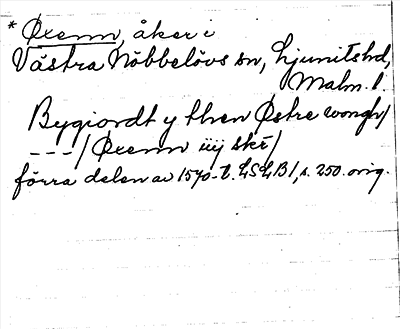 * Øxenn, åker i
Västra Nöbbelövs sn, Ljunitshd,
Malm. l.
Bygiordt y then Østre wongh/
---/ Øxenn iiij skr/
förra delen av 1570-t. LSLB1, s. 250. orig.